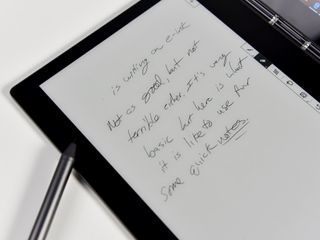 is writing on e-ink
Not as good, but not
terrible either. It's very
basic but here is what
it is like to use for
Some Quick notes.